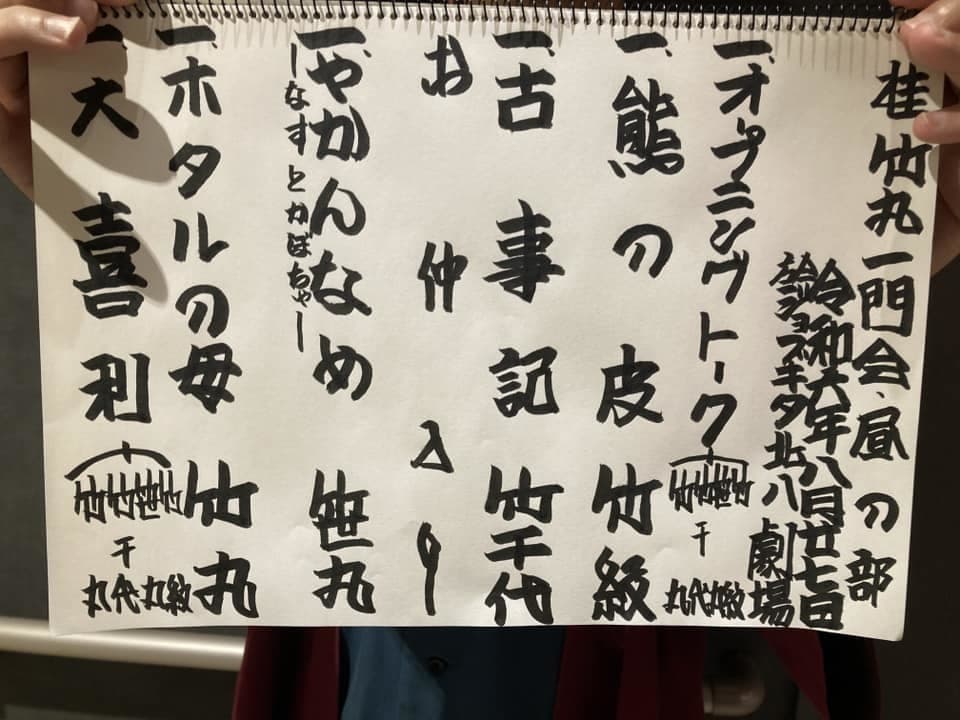 桂竹丸一門会、昼の部
令和六年八月廿七日
於ジョブキタ北八劇場
一、オープニングトーク 竹紋 笹丸 竹千代 竹丸
一、熊の皮 竹紋
一、古事記 竹千代
お仲入り
一、やかんなめ 笹丸
ーなすとかぼちゃー
一、ホタルの母 竹丸
一、大喜利 竹紋 笹丸 竹千代 竹丸